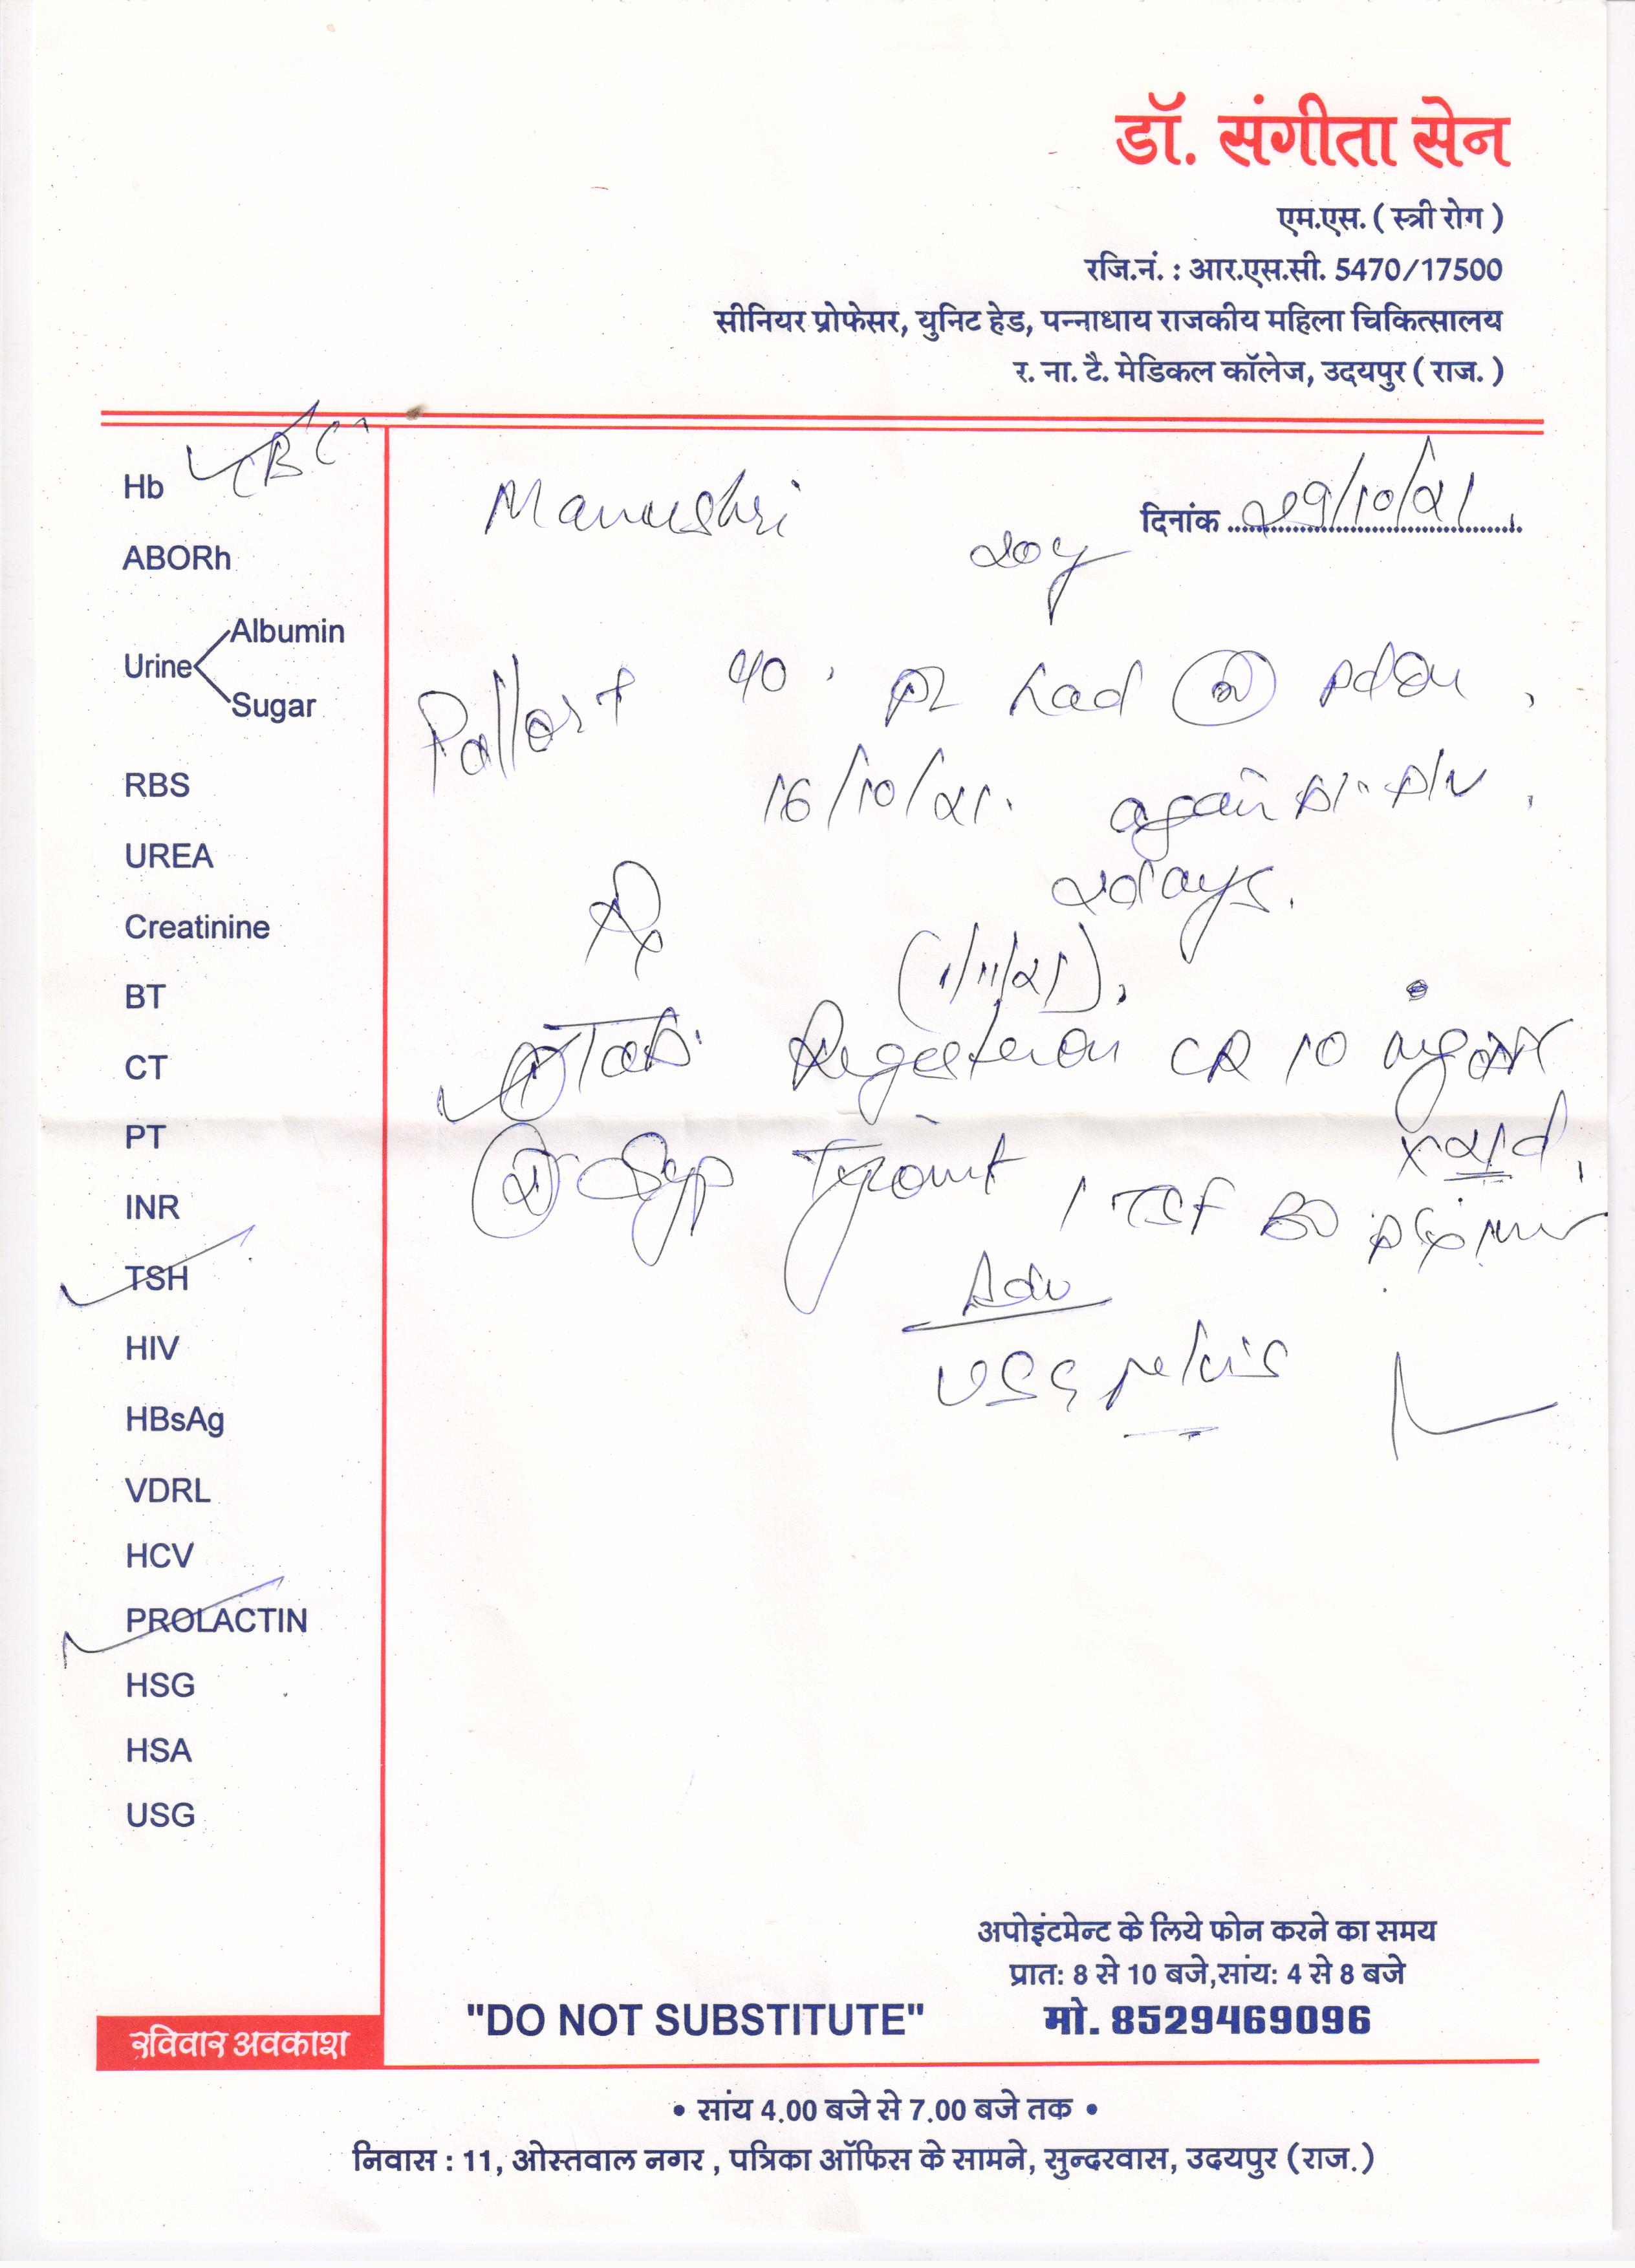 डॉ. संगीता सेन
एम.एस. ( स्त्री रोग )
रजि.नं. : आर.एस.सी. 5470/17500
सीनियर प्रोफेसर, युनिट हेड, पन्नाधाय राजकीय महिला चिकित्सालय
र. ना. टै. मेडिकल कॉलेज, उदयपुर ( राज. )
Hb CBC
ABORh
Urine Albumin
Sugar
RBS
UREA
Creatinine
BT
CT
PT
INR
TSH
HIV
HBsAg
VDRL
HCV
PROLACTIN
HSG
HSA
USG
रविवार अवकाश
दिनांक 29/10/21
20y
Pallor + had
16/10/21. again
2 days.
Rx
(1/11/21).
Tab. Regesteron CR 10
x 21 d.
② Syp 1 TSF BD
Adv
USG pelvis
अपोइंटमेन्ट के लिये फोन करने का समय
प्रात: 8 से 10 बजे,सांय: 4 से 8 बजे
"DO NOT SUBSTITUTE" मो. 8529469096
• सांय 4.00 बजे से 7.00 बजे तक •
निवास : 11, ओस्तवाल नगर , पत्रिका ऑफिस के सामने, सुन्दरवास, उदयपुर (राज.)